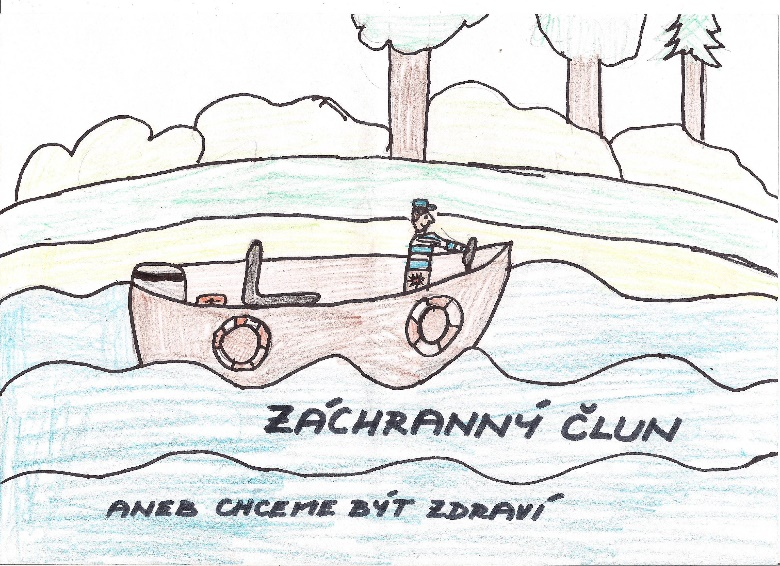 ZÁCHRANNÝ ČLUN
ANEB CHCEME BÝT ZDRAVÍ